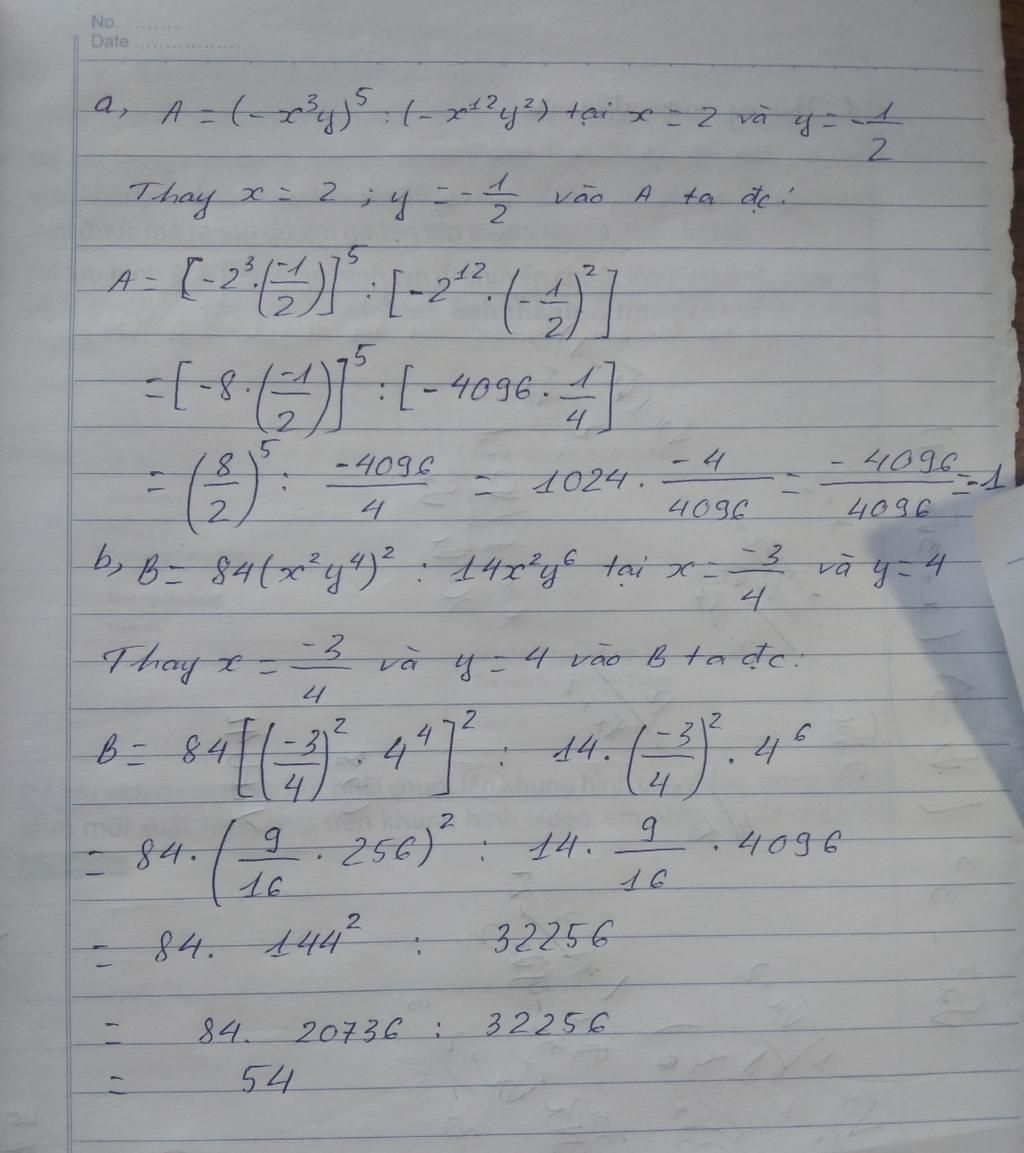 No. ..........
Date ....................
a, A = (- x³y)⁵ : (- x¹²y²) tại x = 2 và y = -1/2
Thay x = 2 ; y = -1/2 vào A ta đc:
A = [-2³ · (-1/2)]⁵ : [-2¹² · (-1/2)²]
= [-8 · (-1/2)]⁵ : [- 4096 · 1/4]
= (8/2)⁵ : -4096/4 = 1024 · -4/4096 = -4096/4096 = -1
b, B = 84(x²y⁴)² : 14x²y⁶ tại x = -3/4 và y = 4
Thay x = -3/4 và y = 4 vào B ta đc:
B = 84[(-3/4)² · 4⁴]² : 14 · (-3/4)² · 4⁶
= 84 · (9/16 · 256)² : 14 · 9/16 · 4096
= 84 . 144² : 32256
= 84 . 20736 : 32256
= 54